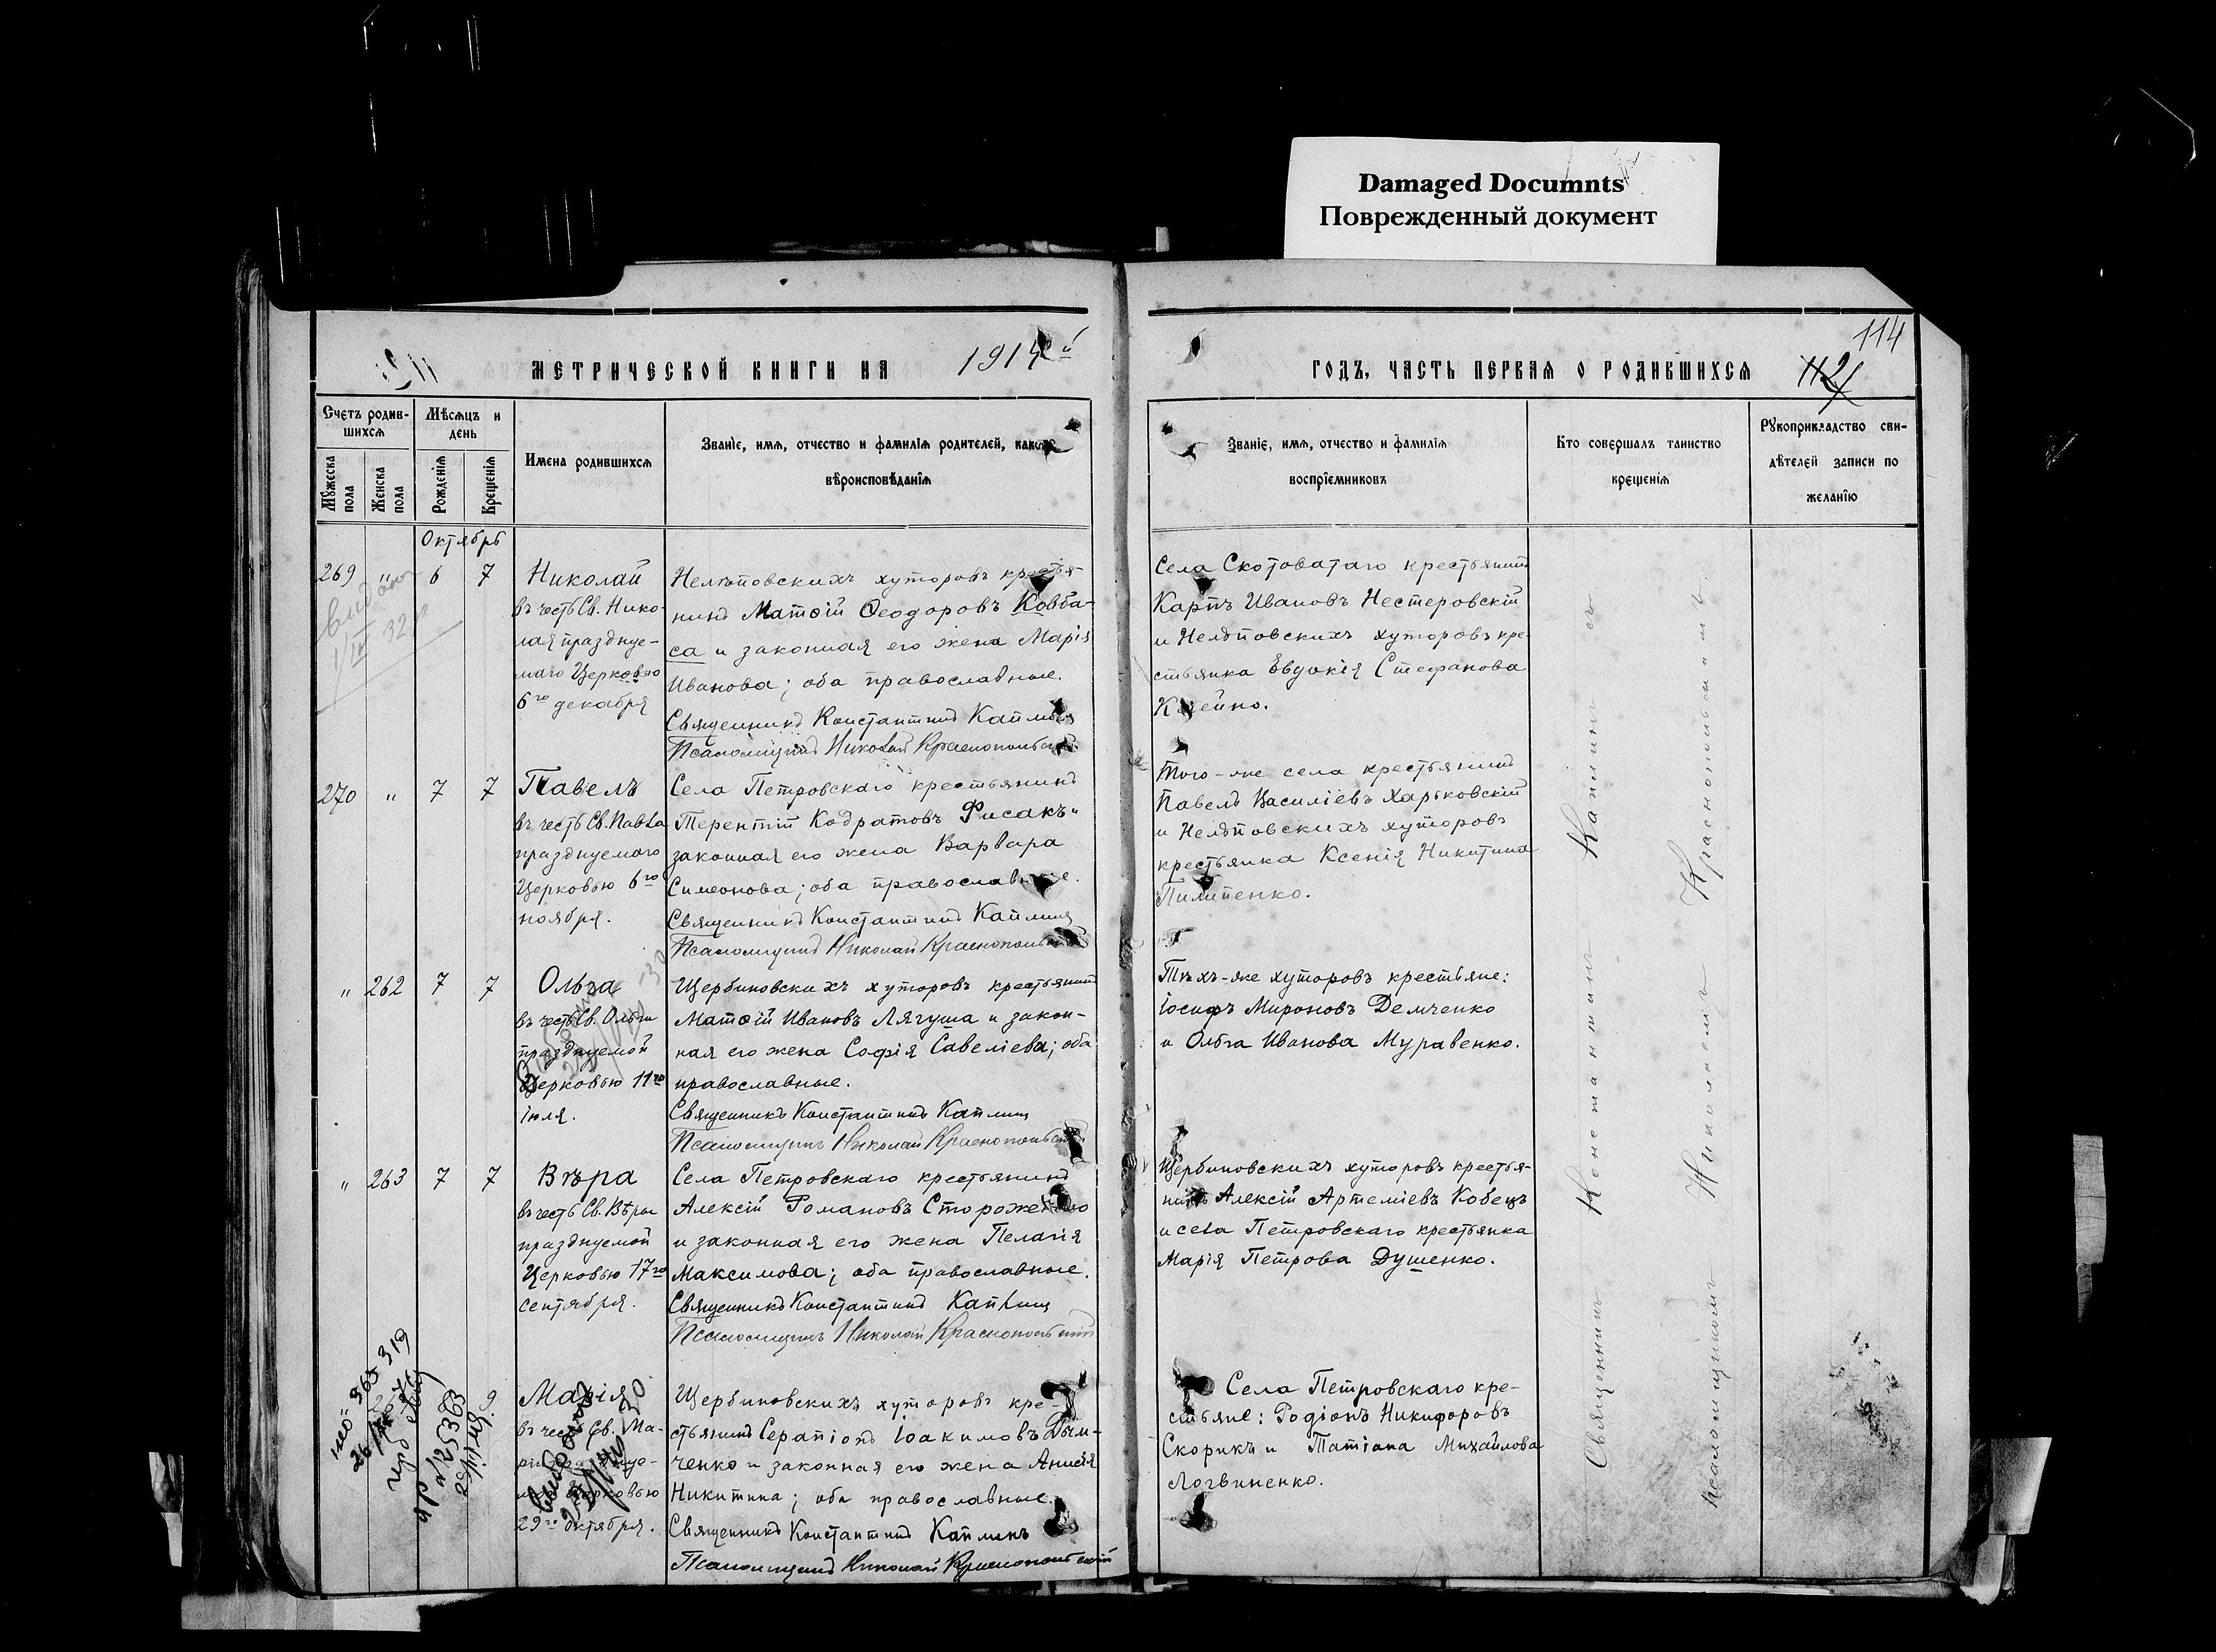 Damaged Documnts
Поврежденный документ
114
МЕТРИЧЕСКОЙ КНИГИ НА 1914 й
ГОДЪ, ЧАСТЬ ПЕРВАЯ О РОДИВШИХСЯ
112
Счетъ родив-
шихся
Мѣсяцъ и
день
Мужеска пола
Женска пола
Рожденія
Крещенія
Имена родившихся
Званіе, имя, отчество и фамилія родителей, какого
вѣроисповѣданія
Званіе, имя, отчество и фамилія
воспріемниковъ
Кто совершалъ таинство
крещенія
Рукоприкладство сви-
дѣтелей записи по
желанію
Октябрь
269 " 6 7
Николай
въ честь Св. Нико-
лая празднуе-
маго Церковью
6го декабря
Нелѣповскихъ хуторовъ крестья-
нинъ Матѳій Ѳеодоровъ Ковба-
са и законная его жена Марія
Иванова; оба православные.
Священникъ Константинъ Каплинъ
Псаломщикъ Николай Краснопольскій
Села Скотоватаго крестьянинъ
Карпъ Ивановъ Нестеровскій
и Нелѣповскихъ хуторовъ кре-
стьянка Евдокія Стефанова
270 " 7 7
Павелъ
въ честь Св. Павла
празднуемаго
Церковью 6го
ноября.
Села Петровскаго крестьянинъ
Терентій Кодратовъ Рисакъ и
законная его жена Варвара
Симеонова; оба православные.
Священникъ Константинъ Каплинъ
Псаломщикъ Николай Краснопольскій
Того-же села крестьянинъ
Павелъ Василіевъ Харьковскій
и Нелѣповскихъ хуторовъ
крестьянка Ксенія Никитина
Пилипенко.
" 262 7 7
Ольга
въ честь Св. Ольги
празднуемой
Церковью 11го
іюля.
Щербиновскихъ хуторовъ крестьянинъ
Матѳій Ивановъ Лягуша и закон-
ная его жена Софія Савеліева; оба
православные.
Священникъ Константинъ Каплинъ
Псаломщикъ Николай Краснопольскій
Тѣхъ-же хуторовъ крестьяне:
Іосифъ Мироновъ Демченко
и Ольга Иванова Муравенко.
" 263 7 7
Вѣра
въ честь Св. Вѣры
празднуемой
Церковью 17го
сентября.
Села Петровскаго крестьянинъ
Алексій Романовъ Стороженко
и законная его жена Пелагія
Максимова; оба православные.
Священникъ Константинъ Каплинъ
Псаломщикъ Николай Краснопольскій
Щербиновскихъ хуторовъ крестья-
нинъ Алексій Артеміевъ Кобецъ
и села Петровскаго крестьянка
Марія Петрова Душенко.
9
Марія
въ честь Св. Ма-
Церковью
29го октября.
Щербиновскихъ хуторовъ кре-
стьянинъ Серапіонъ Іоакимовъ Дым-
ченко и законная его жена Анисія
Никитина; оба православные.
Священникъ Константинъ Каплинъ
Псаломщикъ Николай Краснопольскій
Села Петровскаго кре-
стьяне: Родіонъ Никифоровъ
Скорикъ и Татіана Михайлова
Логвиненко.
Священникъ Константинъ Каплинъ съ
псаломщикомъ Николаемъ Краснопольскимъ